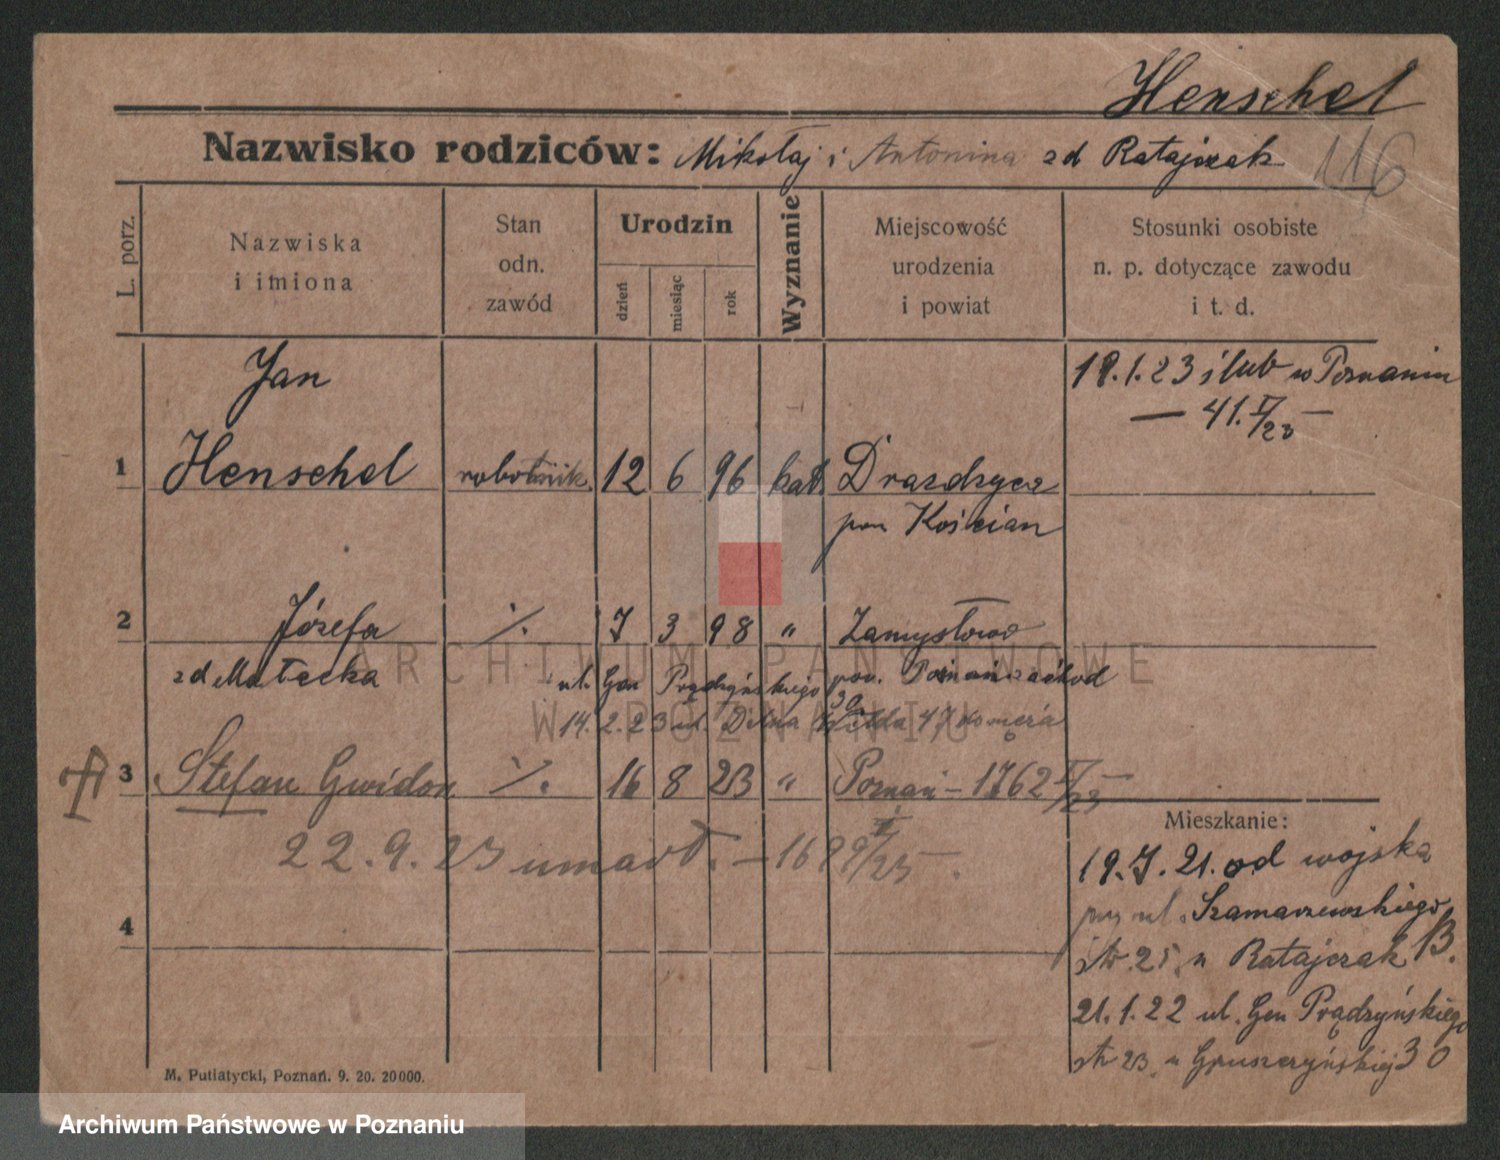 Henschel
Nazwisko rodziców: Mikołaj i Antonina zd Ratajczak 116
L. porz.
Nazwiska i imiona
Stan odn. zawód
Urodzin
dzień
miesiąc
rok
Wyznanie
Miejscowość urodzenia i powiat
Stosunki osobiste n. p. dotyczące zawodu i t. d.
Jan
19.1.23 ślub w Poznaniu
— 41. I/23 —
1 Henschel robotnik 12 6 96 kat. Drazdzycz
pow Kościan
2 Józefa ٪. 7 3 98 " Zamysłowo
zd Małecka ul. Gen Prądzyńskiego 30 pow. Poznań zachód
14.2.23 ul. Dolna Wilda 47
3 Stefan Gwidon ٪. 16 8 23 " Poznań – 1762
22.9.23 umarł.
4
Mieszkanie:
19.7.21. od wojska
przy ul. Szamarzewskiego
str 25. u Ratajczak B.
21.1.22 ul. Gen Prądzyńskiego 30
str 23 u Gruszczyńskiej
M. Putiatycki, Poznań. 9. 20. 20000.
ARCHIWUM PAŃSTWOWE
W POZNANIU
Archiwum Państwowe w Poznaniu